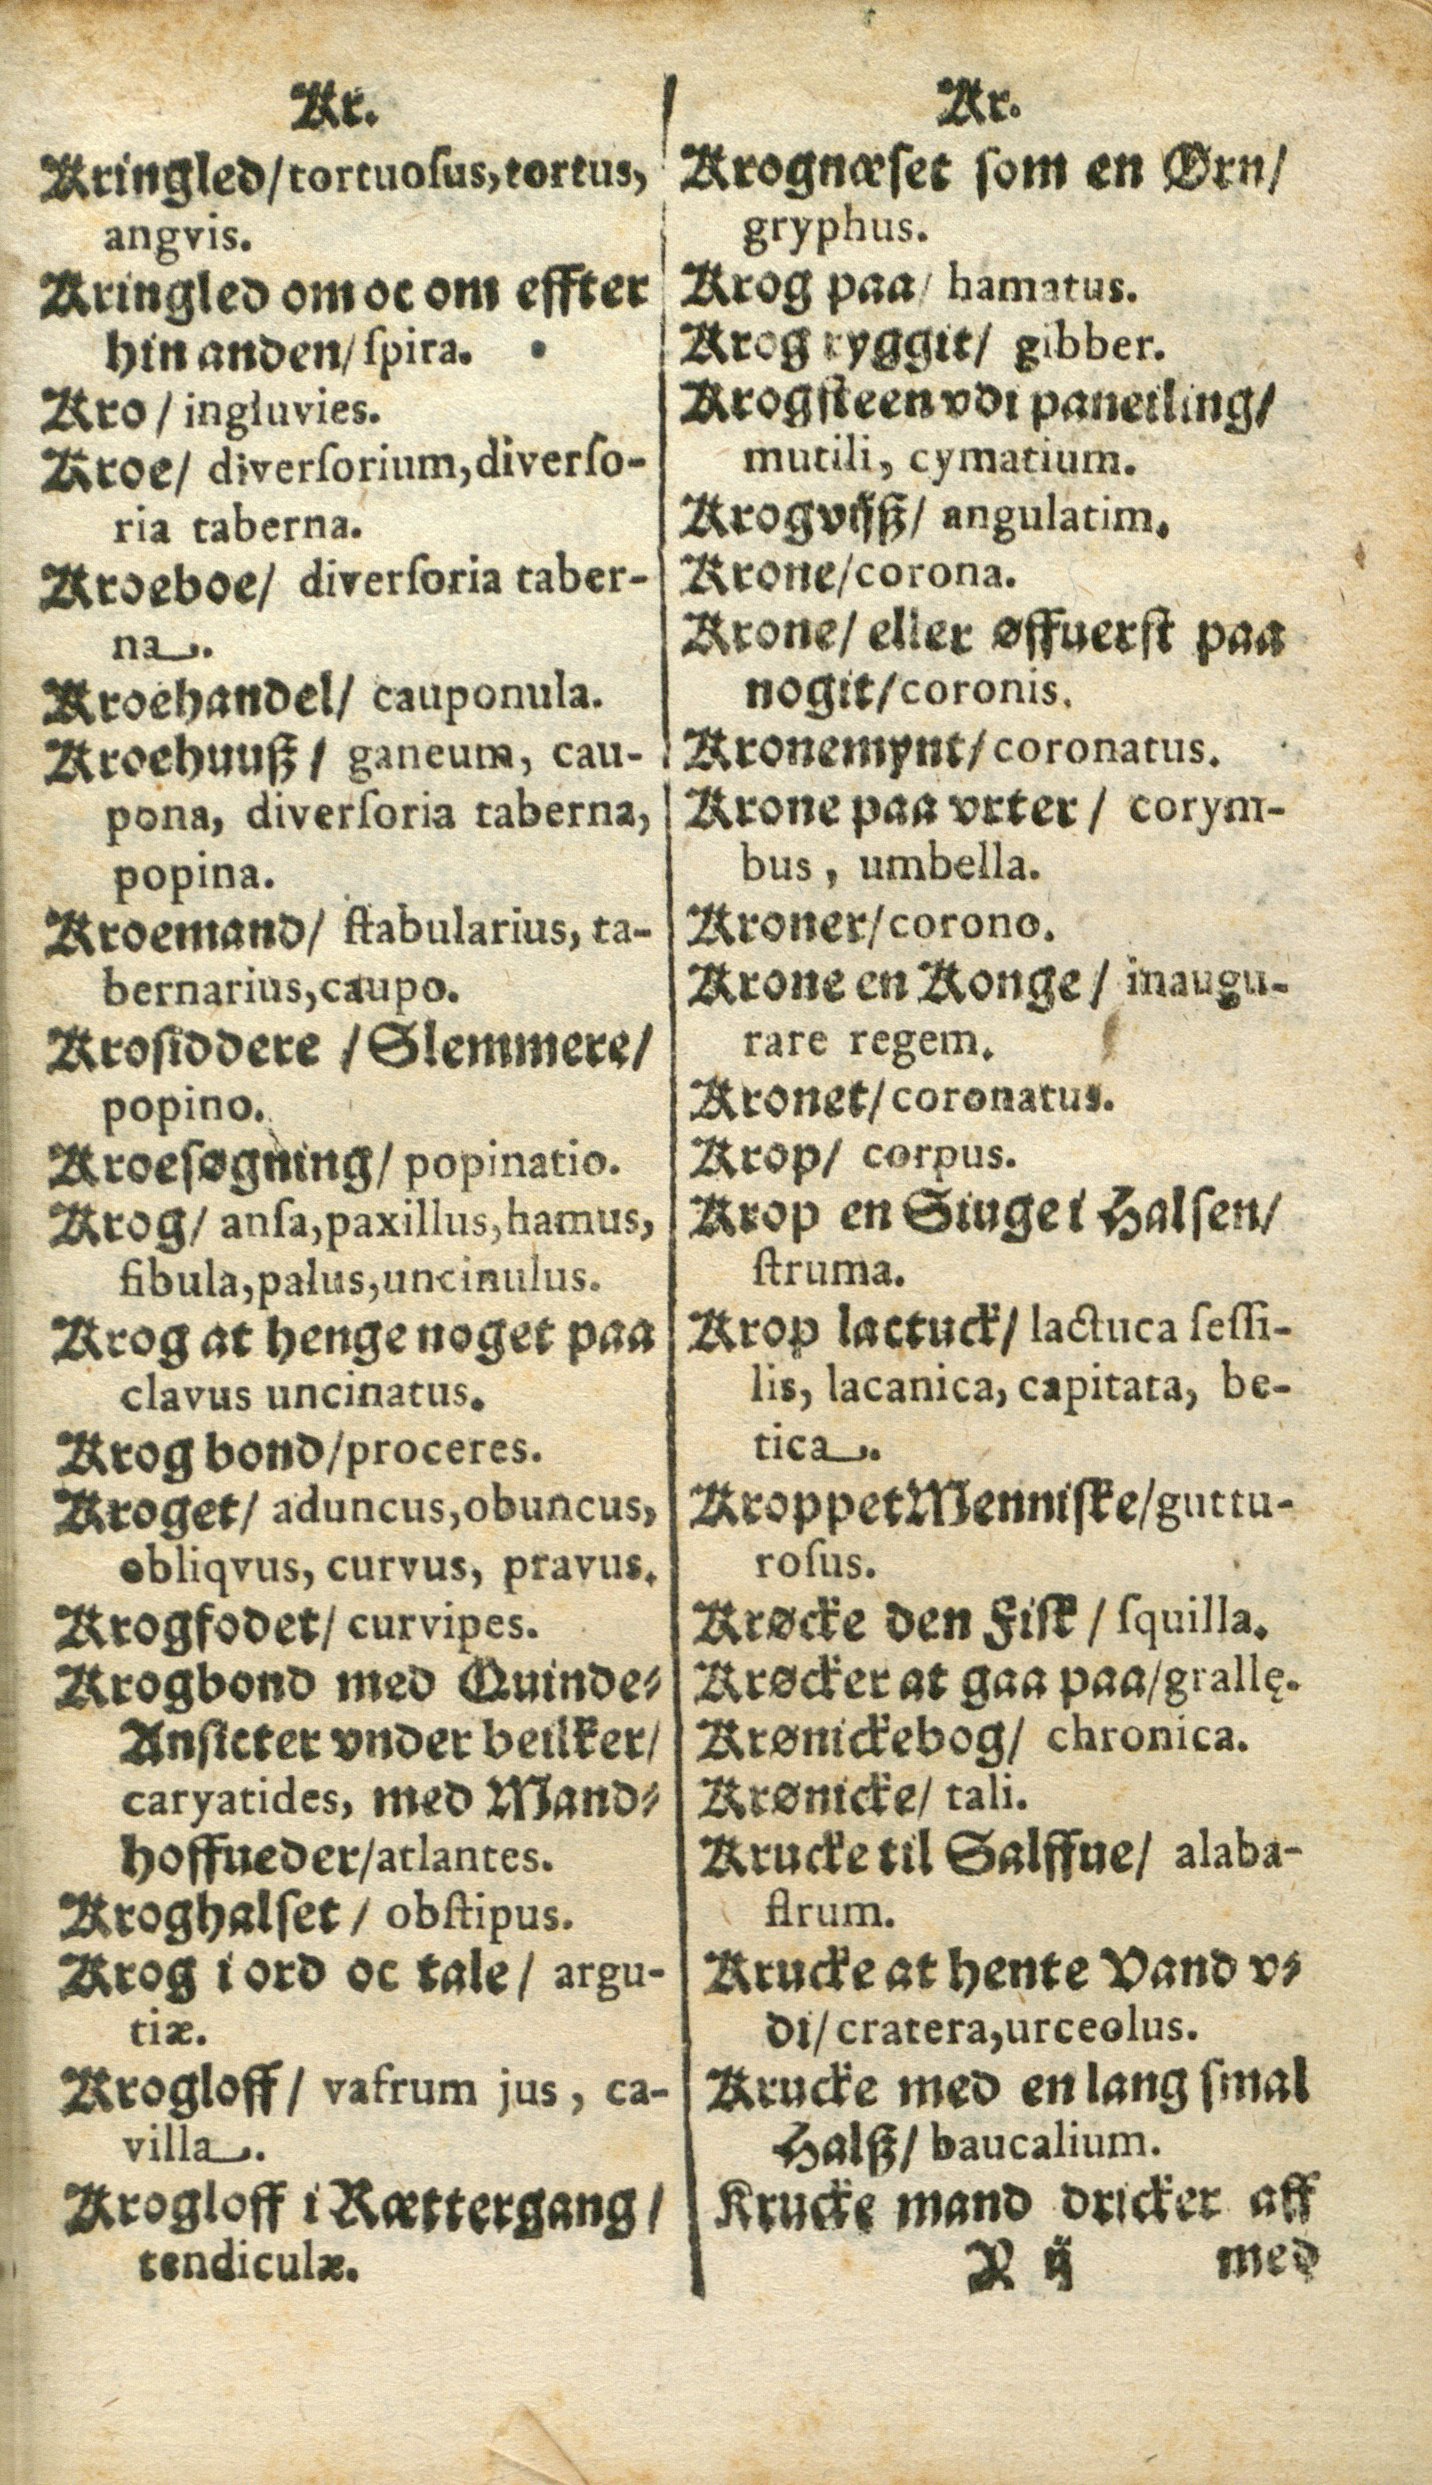 Kr.
Kringled/tortuoſus,tortus,
angvis.
Kringled om oc om effter
hin anden/ſpira.
Kro/ingluvies.
Kroe/ diverſorium,diverſo-
ria taberna.
Kroeboe/ diverſoria taber-
na.
Kroehandel/ cauponula.
Kroehuuß/ ganeum, cau-
pona, diverſoria taberna,
popina.
Kroemand/ ſtabularius, ta-
bernarius,caupo.
Kroſiddere/Slemmere/
popino.
Kroeſøgning/ popinatio.
Krog/ anſa,paxillus,hamus,
fibula,palus,uncinulus.
Krog at henge noget paa
clavus uncinatus.
Krog bond/proceres.
Kroget/ aduncus,obuncus,
obliqvus, curvus, pravus.
Krogfodet/ curvipes.
Krogbond med Quinde-
Anſicter vnder beilker/
caryatides, med Mand-
hoffueder/atlantes.
Kroghalſet/ obſtipus.
Krog i ord oc tale/ argu-
tiæ.
Krogloff/ vafrum jus, ca-
villa.
Krogloff i Rættergang/
tendiculæ.
Kr.
Krognæſet ſom en Ørn/
gryphus.
Krog paa/ hamatus.
Krog ryggit/ gibber.
Krogſteen vdi paneiling/
mutili, cymatium.
Krogvijß/ angulatim.
Krone/corona.
Krone/ eller øffuerſt paa
nogit/coronis.
Kronemynt/coronatus.
Krone paa vrter/ corym-
bus, umbella.
Kroner/corono.
Krone en Konge/ inaugu-
rare regem.
Kronet/coronatus.
Krop/ corpus.
Krop en Siuge i Halſen/
ſtruma.
Krop lactuck/ lactuca ſeſſi-
lis, lacanica, capitata, be-
tica.
Kroppet Menniſke/guttu-
roſus.
Krøcke den Fiſk/ſquilla.
Krøcker at gaa paa/grallę.
Krønickebog/ chronica.
Krønicke/ tali.
Krucke til Salffue/ alaba-
ſtrum.
Krucke at hente Vand v-
di/cratera,urceolus.
Krucke med en lang ſmal
Halß/ baucalium.
Krucke mand dricker aff
R ij med